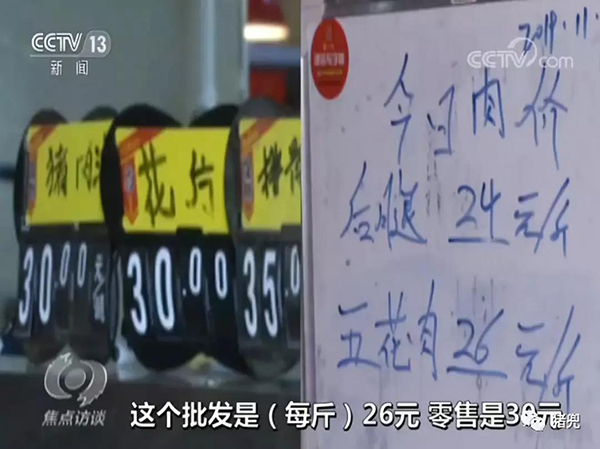 CCTV 13
新闻
猪肉
30.00元
花片
30.00
排骨
35.0
2019.11
CCTV.com
今日肉价
后腿 24 元/斤
五花肉 26 元/斤
焦点访谈
这个批发是（每斤）26元 零售是30元
猪兜